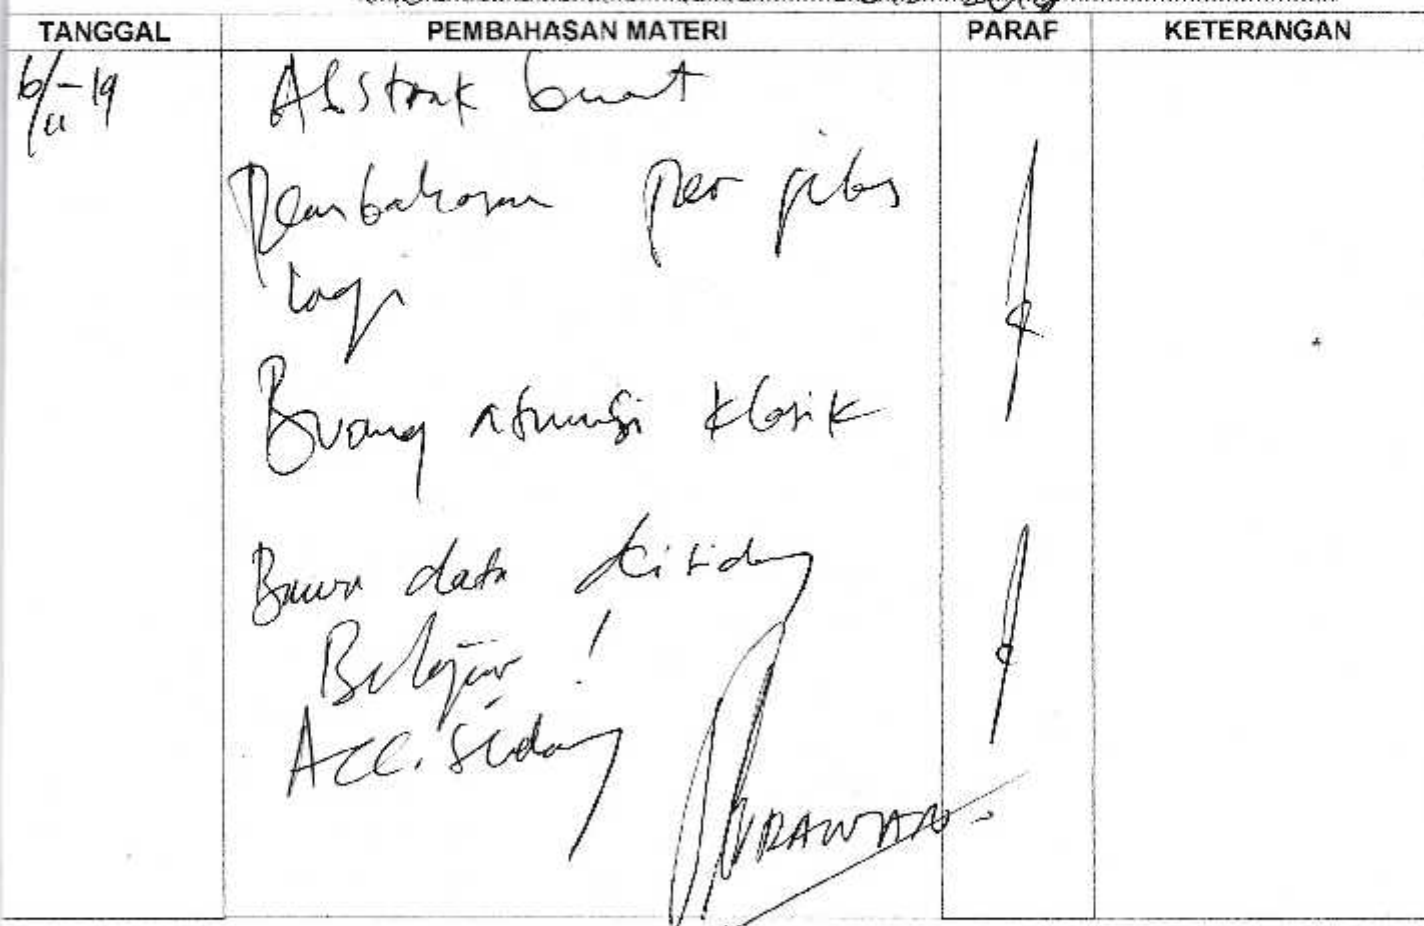 TANGGAL PEMBAHASAN MATERI PARAF KETERANGAN
6/11-19 Abstrak buat
Pembahasan per jelas
lagi
Buang asumsi klasik
Bawa data di sidang
Belajar !
Acc. Sidang